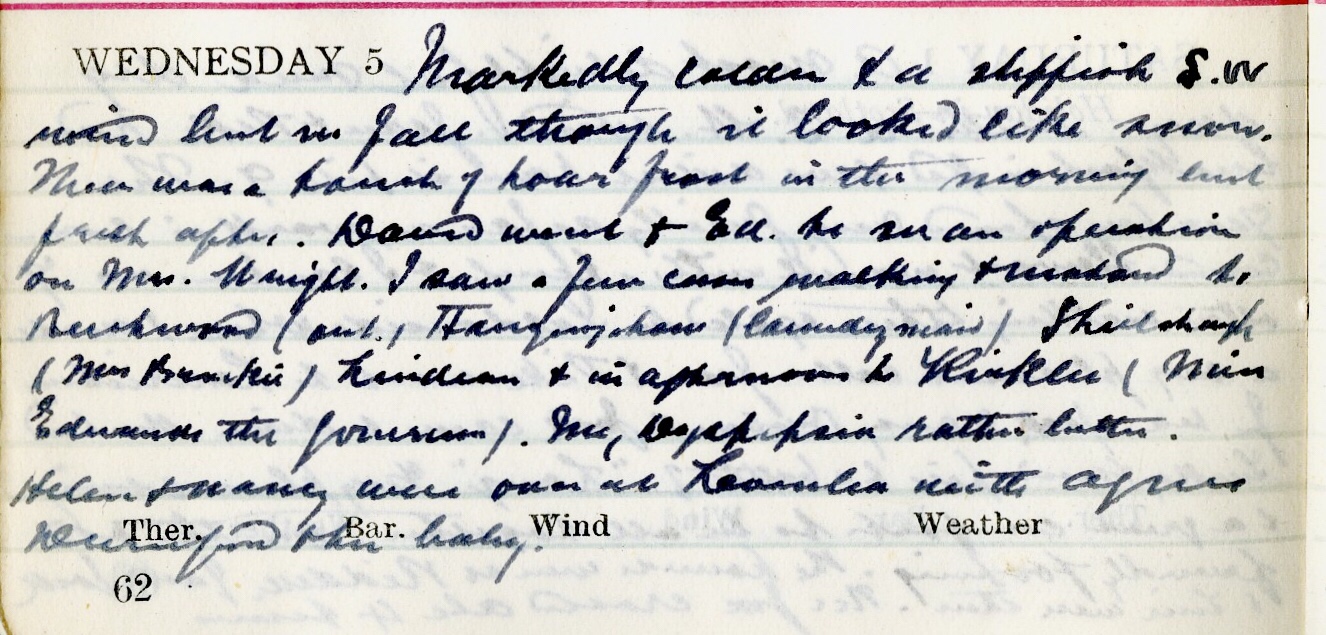 WEDNESDAY 5 Markedly colder & a stiffish S.W
wind but no fall though it looked like snow.
There was a touch of hoar frost in the morning but
fresh after. David went to Ed. to see an operation
on Mrs. Wright. I saw a few cases walking & motored to
(out) (laundrymaid)
(Mrs ) Lindean & in afternoon to Kirklea (Miss
Edwards the governess). My Dyspepsia rather better.
Helen & Nancy were over at with Agnes
& her baby.
Ther. Bar. Wind Weather
62